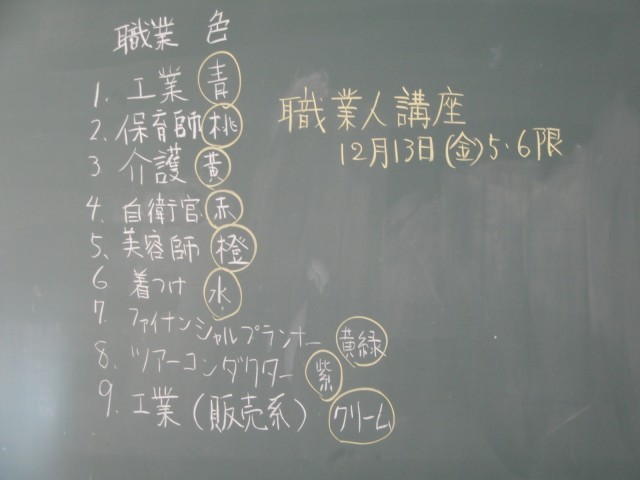 職業 色
1. 工業 青
2. 保育師 桃
3 介護 黄
4. 自衛官 赤
5. 美容師 橙
6 着つけ 水
7. ファイナンシャルプランナー 黄緑
8. ツアーコンダクター 紫
9. 工業(販売系) クリーム
職業人講座
12月13日(金)5・6限